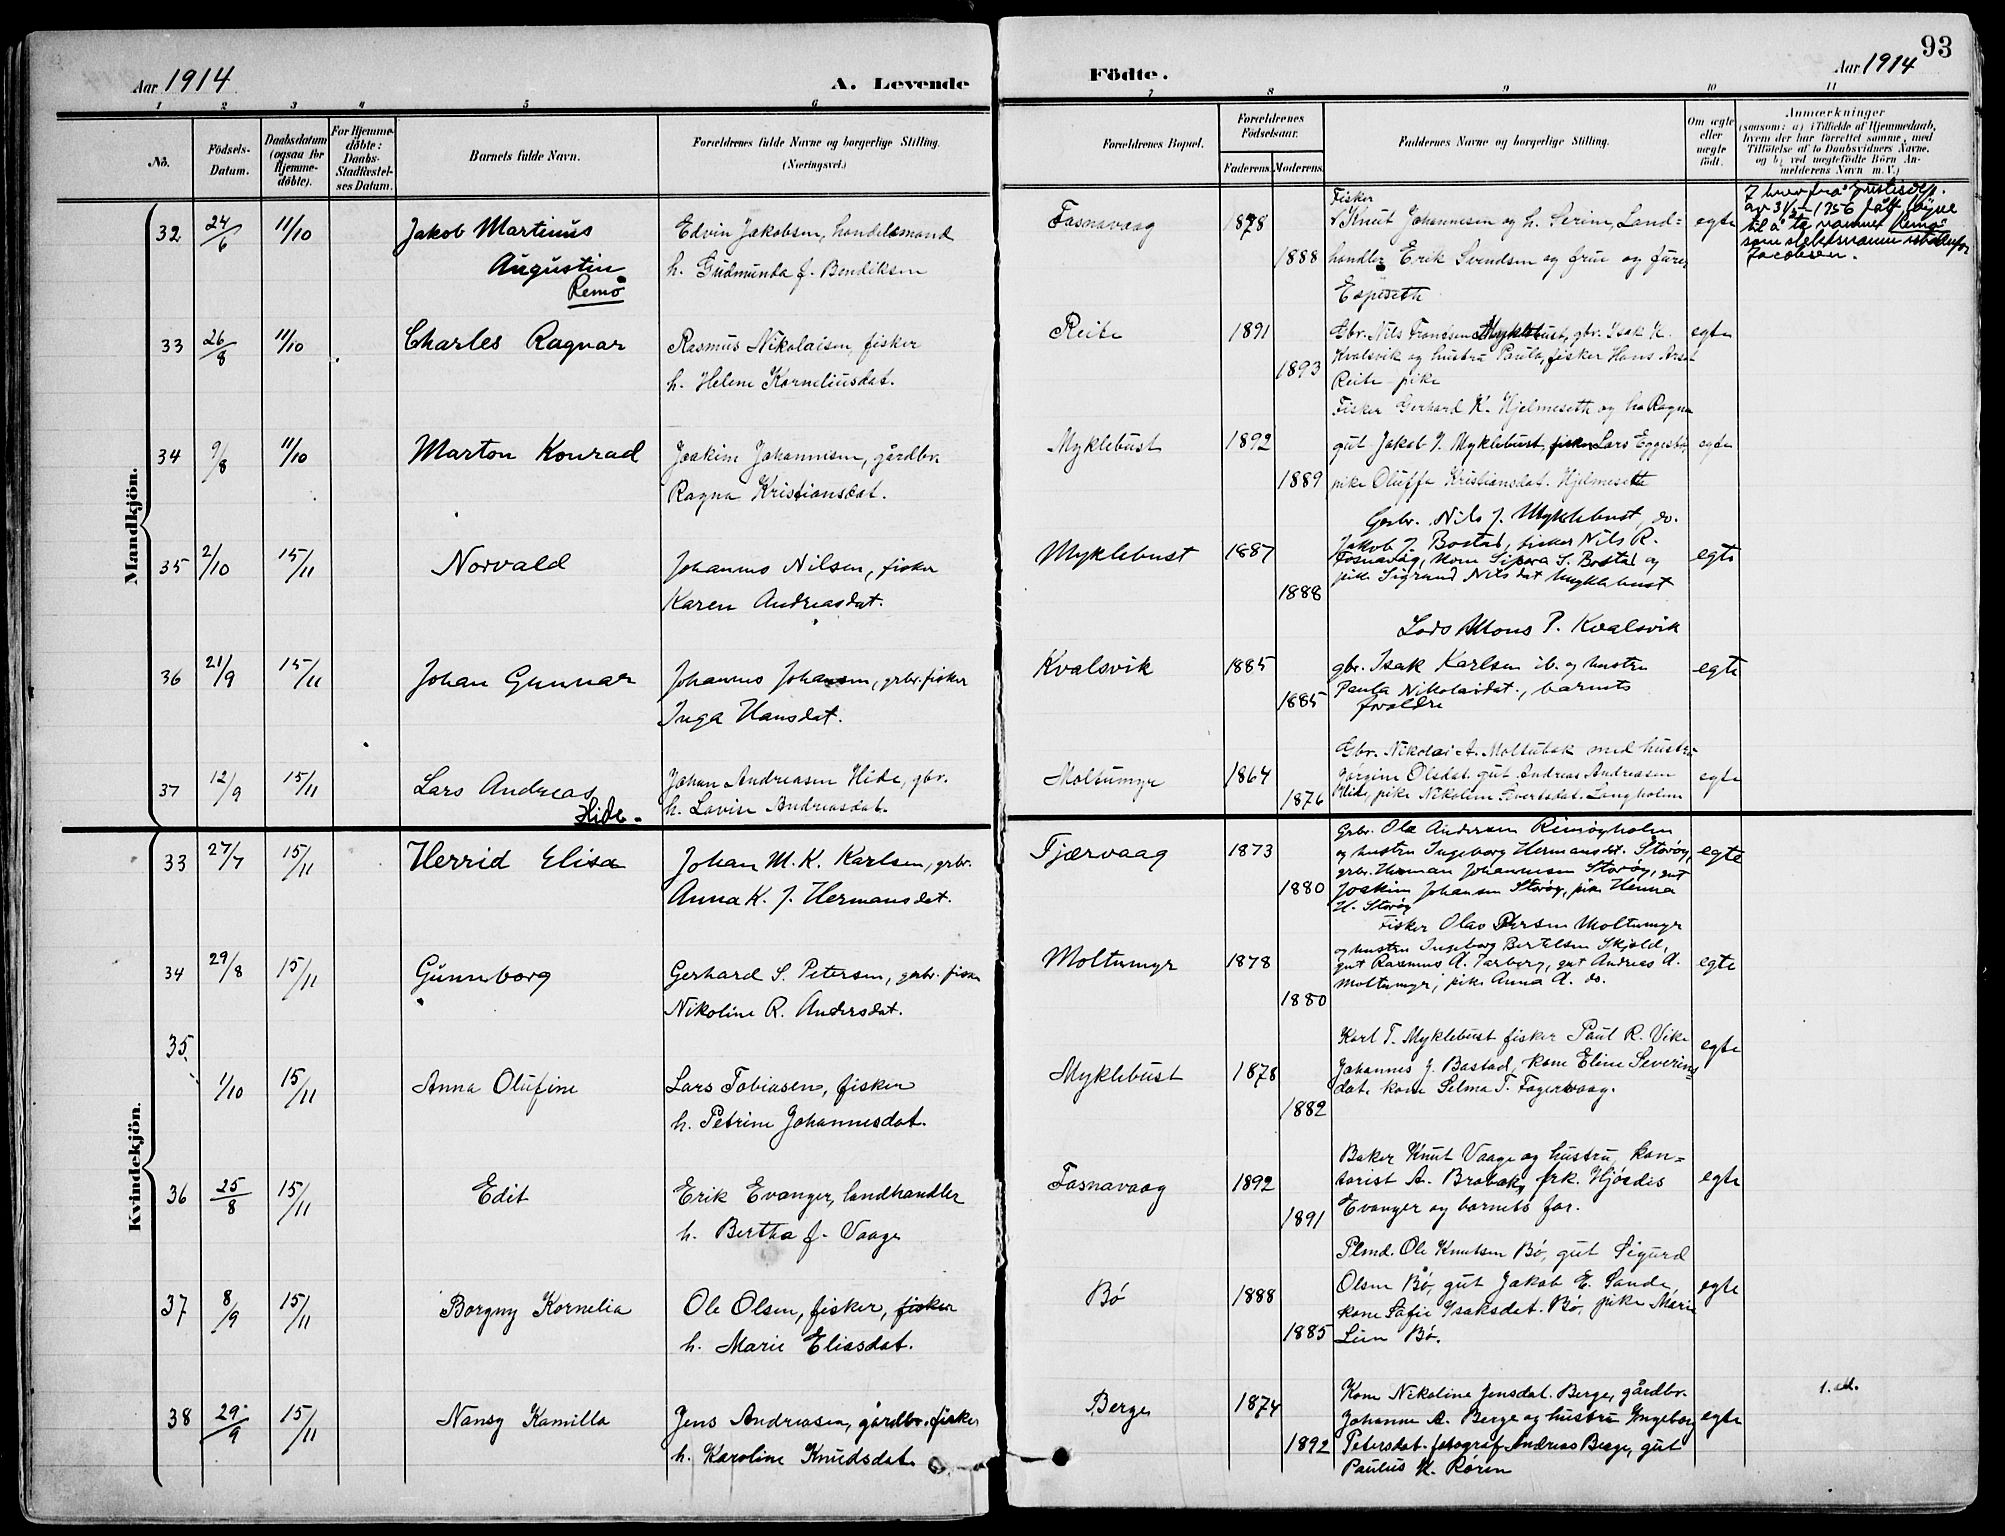 Aar 1914
A. Levende
Födte.
Aar 1914
93
1 2 3 4 5 6 7 8 9 10 11
No.
Födsels-
Datum.
Daabsdatum
(ogsaa for
Hjemme-
døbte).
For Hjemme-
döbte:
Daabs-
Stadfæstel-
ses Datum.
Barnets fulde Navn.
Forældrenes fulde Navne og borgerlige Stilling.
(Næringsvei.)
Forældrenes Bopæl.
Forældrenes
Födselsaar.
Faderens. Moderens.
Faddernes Navne og borgerlige Stilling.
Om ægte
eller
uægte
födt.
Anmærkninger
(saasom: a) i Tilfælde af Hjemmedaab,
hvem der har forrettet samme, med
Tilföielse af to Daabsvidners Navne,
og b) ved uægtefödte Börn An-
melderens Navn m. V.)
Mandkjön.
32 24/6 11/10 Jakob Martinus
Augustin
Remö
Edvin Jakobsen, handelsmand
h. Gudmunda f. Bendiksen
Fosnavaag 1878
1888
Fisker
Knut Johannesen og h. Serine, Land-
handler Erik Svendsen og frue og
Espeseth
egte
av 31/5 1956 fått
til å ta navnet Remö
som slektsnavn istedenfor
Jacobsen.
33 26/8 11/10 Charles Ragnar
Rasmus Nikolaisen, fisker
h. Helene Korneliusdat.
Reite 1891
1893
Gbr. Nils Myklebust, gbr. Isak K.
Kvalsvik og hustru Paula, fisker Hans
Reite pike
egte
34 9/8 11/10 Marton Konrad
Joakim Johannesen, gårdbr.
Ragna Kristiansdat.
Myklebust 1892
1889
Fisker Gerhard K. Hjelmeseth og Ragna
gut Jakob J. Myklebust, fisker Lars Eggesbö,
pike Oluffa Kristiansdat. Hjelmeseth
egte
35 2/10 15/11 Norvald
Johannes Nilsen, fisker
Karen Andreasdat.
Myklebust 1887
1888
Gbr. Nils J. Myklebust, do.
Jakob J. Bostad, fisker Nils R.
Fosnavåg, kone S. Bostad og
pike Nilsdat Myklebust
egte
36 21/9 15/11 Johan Gunnar
Johannes Johansen, grbr. fisker
Inga Hansdat.
Kvalsvik 1885
1885
Lods Mons P. Kvalsvik
gbr. Isak Karlsen ib. og hustru
Paula Nikolaidat., barnets
foraldre
egte
37 12/9 15/11 Lars Andreas
Hide.
Johan Andreasen Hide, gbr.
h. Lovise Andreasdat.
Moltumyr 1864
1876
Gbr. Nikolai A. Moltubak med hustru
Jørgine Olsdat. gut Andreas Andreasen
Hide, pike Nikoline Sivertsdat. Langholm
egte
Kvindekjön.
33 27/7 15/11 Herrid Elisa
Johan M. K. Karlsen, grbr.
Anna K. J. Hermansdat.
Tjærvaag 1873
1880
Grbr. Ole Andersen Remøyholm
og hustru Ingeborg Hermansdt. Storøy,
grbr. Herman Johannesen Storøy, gut
Joakim Johansen Storøy, pike Henna
H. Storøy
egte
34 29/8 15/11 Gunnborg
Gerhard S. Petersen, grbr. fisker
Nikoline R. Andersdat.
Moltumyr 1878
1880
Fisker Olav Persen Moltumyr
og hustru Ingeborg Bertelsen Skjold,
gut Rasmus A. Tarberg, gut Andreas A.
Moltumyr, pike Anna A. do.
egte
35. 1/10 15/11 Anna Olufine
Lars Tobiasen, fisker
h. Petrine Johannesdat.
Myklebust 1878
1882
Karl T. Myklebust fisker Paul R. Vike
Johannes J. Bostad, kone Eline Severins-
dat. kone Selma T. Fagervaag.
egte
36 25/8 15/11 Edit
Erik Evanger, landhandler
h. Bertha f. Vaage
Fosnavaag 1892
1891
Baker Knut Vaage og hustru, kon-
torist A. frk. Hjørdis
Evanger og barnets far.
egte
37 8/9 15/11 Borgny Kornelia
Ole Olsen, fisker, fisker
h. Marie Eliasdat.
Bø 1888
1885
Plmd. Ole Knutsen Bø, gut Sigurd
Olsen Bø, gut Jakob E. Sande,
kone Sofie Ysaksdat. Bø, pike Marie
Bø.
egte
38 29/9 15/11 Nansy Kamilla
Jens Andreasen, gårdbr. fisker
h. Karoline Knudsdat.
Berge 1874
1892
Kone Nikoline Jensdat. Berge, gårdbr.
Johannes A. Berge og hustru Yngeborg
Petersdat. fotograf Andreas Berge, gut
Paulus K. Røren
egte